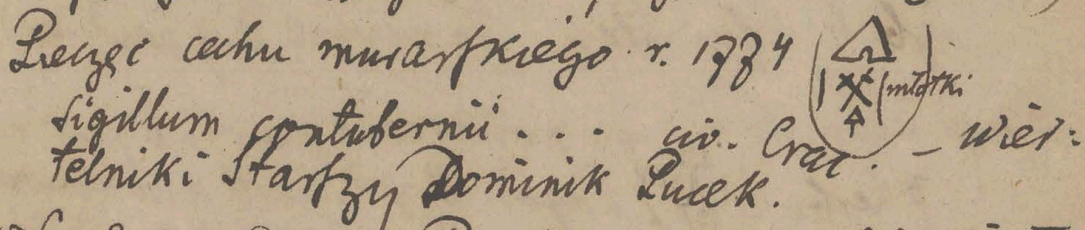 Pieczęć cechu murarskiego r. 1774
młotki
sigillum contubernii . . . civ. Crac. – wier:
telniki Starszy Dominik Pucek.